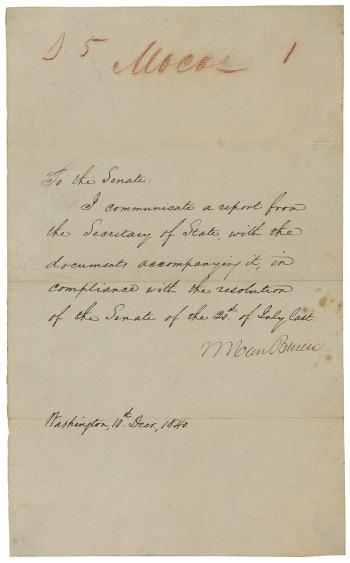 D. 5 1
To the Senate:
I communicate a report from
the Secretary of State, with the
documents accompanying it, in
compliance with the resolution
of the Senate of the 20th. of July last.
M Van Buren
Washington, 10th Decr, 1840.